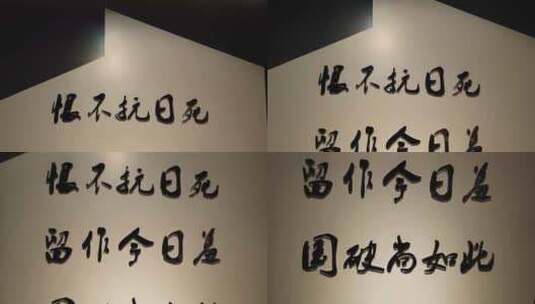 恨不抗日死
恨不抗日死
留作今日羞
恨不抗日死
留作今日羞
留作今日羞
国破尚如此